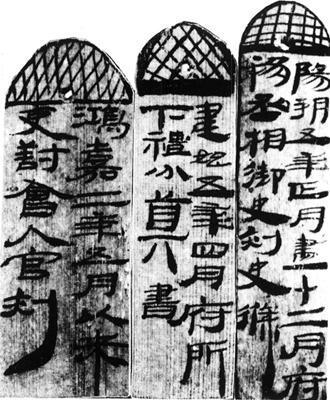 陽朔五年正月盡十二月府
移丞相御史刺史條
建始五年四月府所
下禮分書
鴻嘉二年五月以來
吏對會入官刺